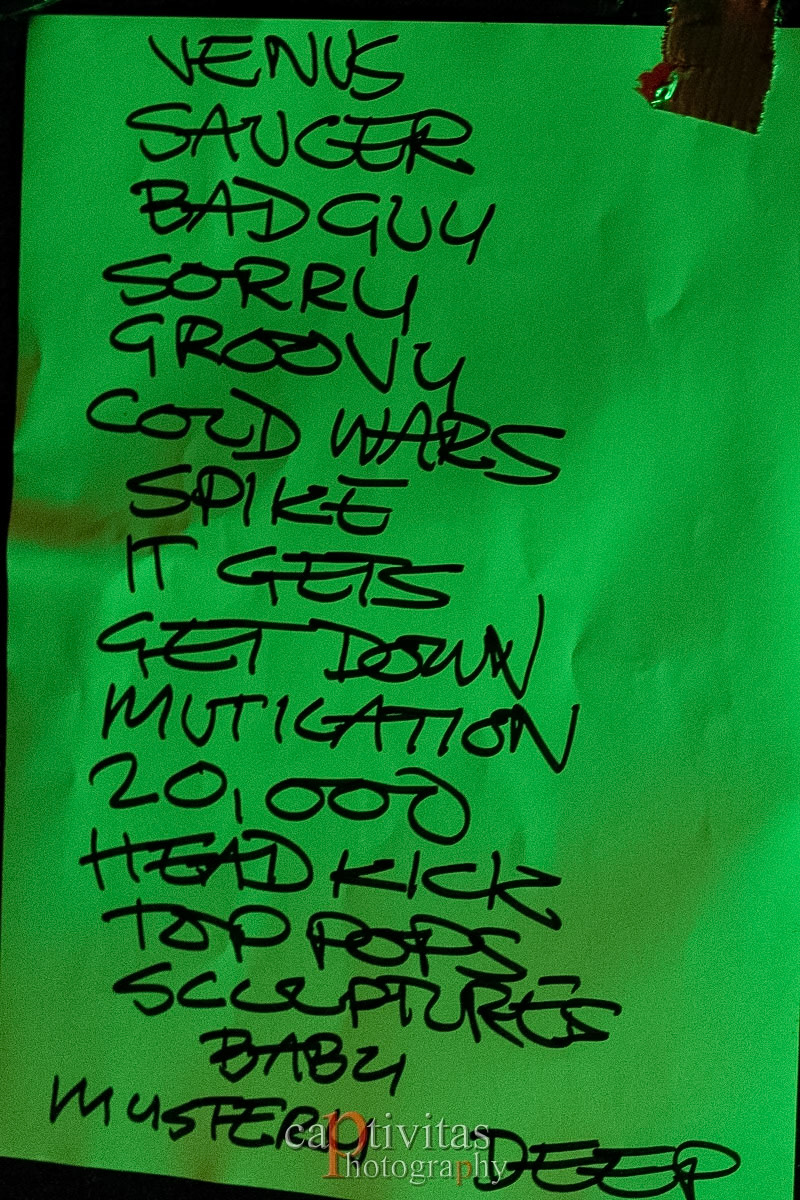 VENUS
SAUCER
BAD GUY
SORRY
GROOVY
COLD WARS
SPIKE
IT GETS
GET DOWN
MUTIGATION
20,000
HEAD KICK
TOP POPS
SCULPTURES
BABY
MYSTERY
DEEP
captivitas
Photography